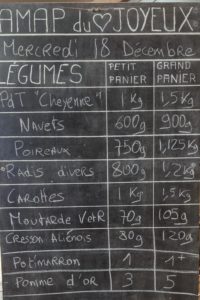 AMAP du ♡ JOYEUX
Mercredi 18 Décembre
LÉGUMES PETIT PANIER GRAND PANIER
PdT "Cheyenne" 1 Kg 1,5 Kg
NAVETS 600g 900g
POIREAUX 750g 1,125 Kg
RADIS divers 800g 1,2 Kg
CAROTTES 1 Kg 1,5 Kg
MOUTARDE VERTE 70g 105g
CRESSON ALÉNOIS 80g 120g
POTIMARRON 1 1+
POMME D'OR 3 5